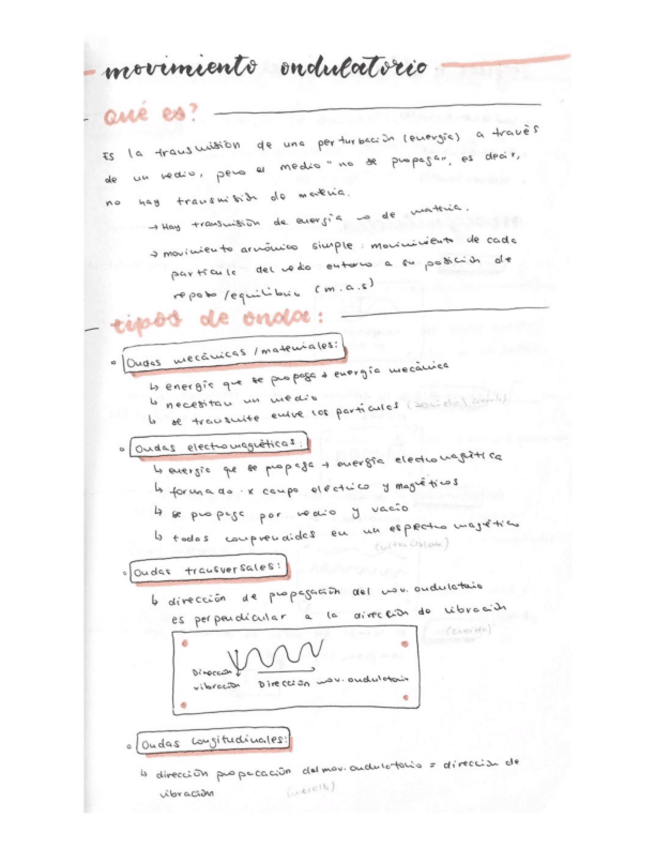 movimiento ondulatorio
qué es?
Es la transmisión de una perturbación (energía) a través
de un medio, pero el medio "no se propaga", es decir,
no hay transmisión de materia.
→ Hay transmisión de energía no de materia.
→ movimiento armónico simple: movimiento de cada
partícula del medio entorno a su posición de
reposo/equilibrio (m.a.s)
tipos de onda:
Ondas mecánicas/materiales:
↳ energía que se propaga → energía mecánica
↳ necesitan un medio
↳ se transmite entre las partículas
Ondas electromagnéticas:
↳ energía que se propaga → energía electromagnética
↳ formada x campo eléctrico y magnéticos
↳ se propaga por medio y vacío
↳ todas comprendidas en un espectro magnético
Ondas transversales:
↳ dirección de propagación del mov. ondulatorio
es perpendicular a la dirección de vibración
(cuerda)
Dirección
vibración Dirección mov. ondulatorio
Ondas longitudinales:
↳ dirección propagación del mov. ondulatorio = dirección de
vibración (muelle)